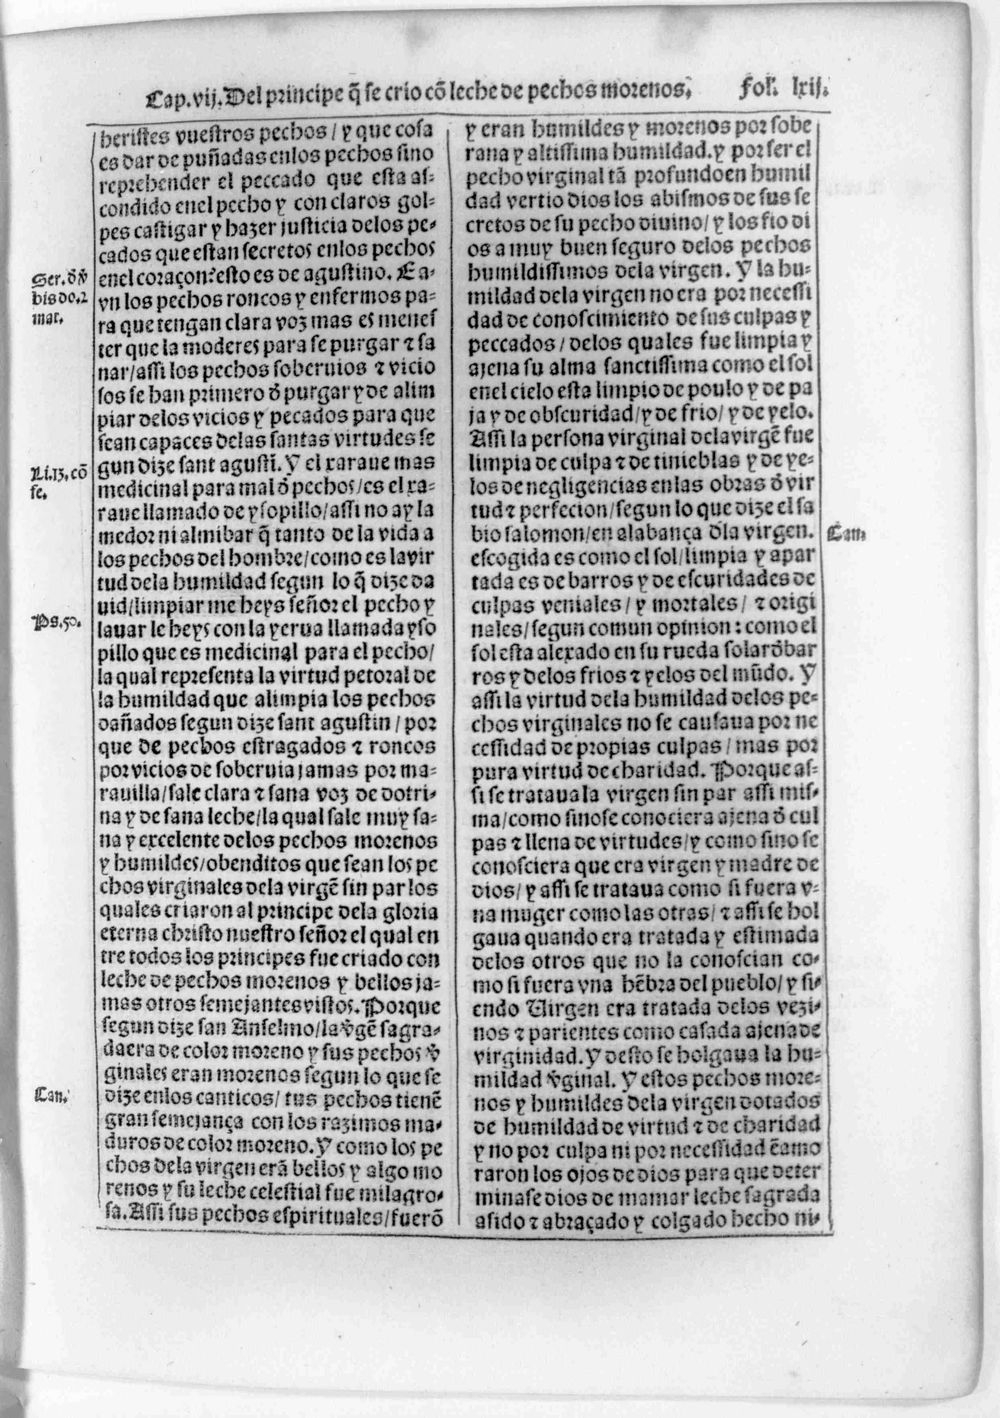 Cap.vij.Del principe q̃ se crio cõ leche de pechos morenos. fol. lxij.
heristes vuestros pechos/ y que cosa
es dar de puñadas enlos pechos sino
reprehender el peccado que esta as-
condido enel pecho y con claros gol-
pes castigar y hazer justicia delos pe-
cados que estan secretos enlos pechos
enel coraçon: esto es de agustino. Ea-
Ser. d̃ v̄
bis do.2
mat.
vn los pechos roncos y enfermos pa-
ra que tengan clara voz mas es menes
ter que la moderes para se purgar ⁊ sa
nar/assi los pechos soberuios ⁊ vicio
sos se han primero d̃ purgar y de alim
piar delos vicios y pecados para que
sean capaces delas santas virtudes se
gun dize sant agustĩ. Y el xaraue mas
Li.13.cõ
fe.
medicinal para mal d̃ pechos/es el xa-
raue llamado de ysopillo/assi no ay la
medor ni almibar q̃ tanto de la vida a
los pechos del hombre/como es la vir
tud dela humildad segun lo q̃ dize da
uid/limpiar me heys señor el pecho y
Ps.50.
lauar le heys con la yerua llamada yso
pillo que es medicinal para el pecho/
la qual representa la virtud petoral de
la humildad que alimpia los pechos
dañados segun dize sant agustin/por
que de pechos estragados ⁊ roncos
por vicios de soberuia jamas por ma-
rauilla/sale clara ⁊ sana voz de dotri-
na y de sana leche/la qual sale muy sa-
na y excelente delos pechos morenos
y humildes/o benditos que sean los pe
chos virginales dela virgẽ sin par los
quales criaron al principe dela gloria
eterna christo nuestro señor el qual en
tre todos los principes fue criado con
leche de pechos morenos y bellos ja-
mas otros semejantes vistos. Porque
segun dize san Anselmo/la v̄gẽ sagra-
da era de color moreno y sus pechos v̄
ginales eran morenos segun lo que se
Can.
dize enlos canticos/ tus pechos tienẽ
gran semejança con los razimos ma-
duros de color moreno. Y como los pe
chos dela virgen erã bellos y algo mo
renos y su leche celestial fue milagro-
sa. Assi sus pechos espirituales/fuerõ
y eran humildes y morenos por sobe
rana y altissima humildad. y por ser el
pecho virginal tã profundo en humil
dad vertio dios los abismos de sus se
cretos de su pecho diuino/ y los fio di
os a muy buen seguro delos pechos
humildissimos dela virgen. Y la hu-
mildad dela virgen no era por necessi
dad de conoscimiento de sus culpas y
peccados/ delos quales fue limpia y
ajena su alma sanctissima como el sol
enel cielo esta limpio de poulo y de pa
ja y de obscuridad/ y de frio/ y de yelo.
Assi la persona virginal dela virgẽ fue
limpia de culpa ⁊ de tinieblas y de ye-
los de negligencias enlas obras d̃ vir
tud ⁊ perfecion/segun lo que dize el sa
bio salomon/en alabança d̃la virgen.
Can.
escogida es como el sol/limpia y apar
tada es de barros y de escuridades de
culpas veniales/ y mortales/ ⁊ origi
nales/segun comun opinion: como el
sol esta alexado en su rueda solar d̃ bar
ros y delos frios ⁊ yelos del mũdo. Y
assi la virtud dela humildad delos pe-
chos virginales no se causaua por ne
cessidad de propias culpas/ mas por
pura virtud de charidad. Porque as-
si se trataua la virgen sin par assi mis-
ma/como sino se conociera ajena d̃ cul
pas ⁊ llena de virtudes/y como sino se
conosciera que era virgen y madre de
dios/ y assi se trataua como si fuera v-
na muger como las otras/ ⁊ assi se hol
gaua quando era tratada y estimada
delos otros que no la conoscian co-
mo si fuera vna hẽbra del pueblo/ y si-
endo Uirgen era tratada delos vezi-
nos ⁊ parientes como casada ajena de
virginidad. Y desto se holgaua la hu-
mildad v̄ginal. Y estos pechos more-
nos y humildes dela virgen dotados
de humildad de virtud ⁊ de charidad
y no por culpa ni por necessidad ẽamo
raron los ojos de dios para que deter
minase dios de mamar leche sagrada
asido ⁊ abraçado y colgado hecho ni-